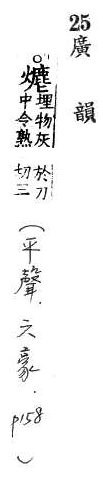 25廣韻
爊埋物灰中令熟於刀切三(平聲．六豪．p158)